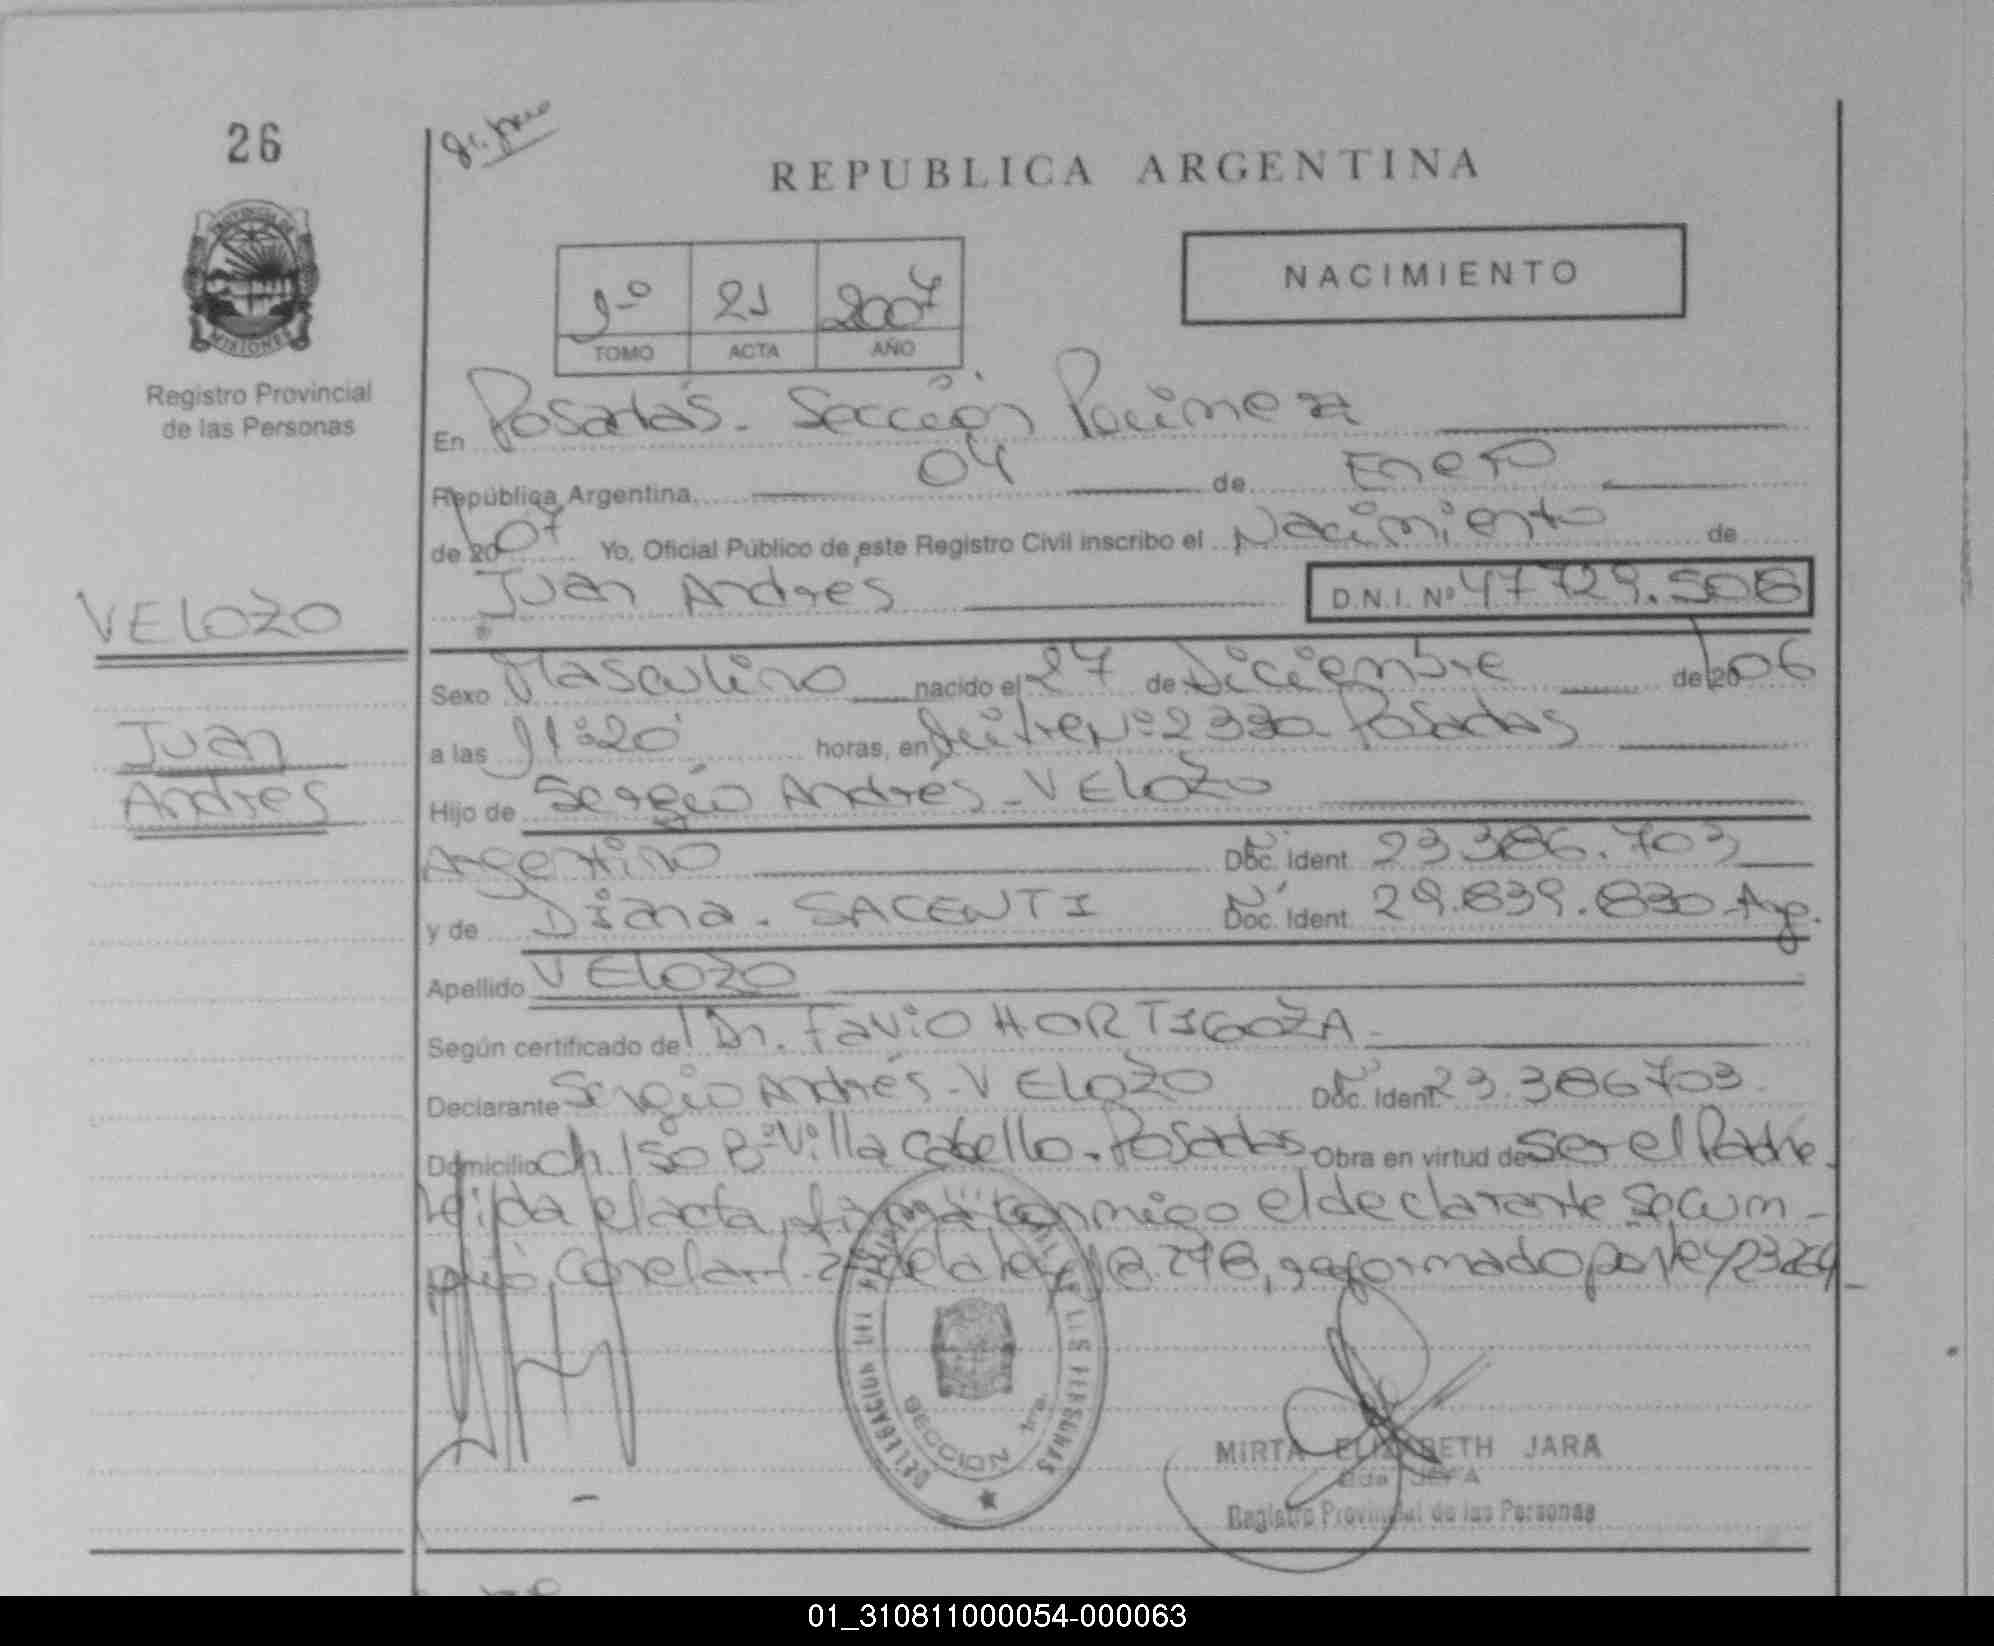 26
REPUBLICA ARGENTINA
PROVINCIA DE MISIONES
Registro Provincial
de las Personas
1º 21 2007
TOMO ACTA AÑO
NACIMIENTO
En Posadas. Sección Primera
República Argentina, 04 de Enero
de 2007 Yo, Oficial Público de este Registro Civil inscribo el Nacimiento de
Juan Andres D.N.I. Nº 47729.508
VELOZO
Juan
Andres
Sexo Masculino nacido el 27 de Diciembre de 2006
a las 11:20 horas, en Nº 2330 Posadas
Hijo de Sergio Andrés - VELOZO
Argentino Doc. Ident. 23386.703
y de Diana. SACENTI Doc. Ident. 29.839.830 Arg.
Apellido VELOZO
Según certificado de Dr. Favio HORTIGOZA
Declarante Sergio Andrés - VELOZO Doc. Ident. 23.386703
Domicilio ch. 150 Bº Villa Cabello. Posadas Obra en virtud de ser el Padre.
leida el acta, firma conmigo el declarante Se cum-
plió, con el art. 2 de la ley 18.248, reformado por ley 23264
DELEGACION DEL REGISTRO PROVINCIAL DE LAS PERSONAS
SECCION 1ra.
MIRTA ELIZABETH JARA
JEFA
Registro Provincial de las Personas
01_310811000054-000063